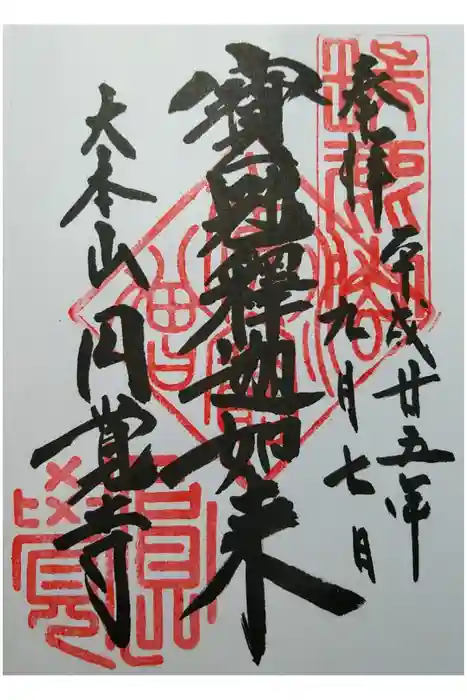 奉拝
平成廿五年
九月七日
寶冠釋迦如来
大本山円覚寺
圓覺